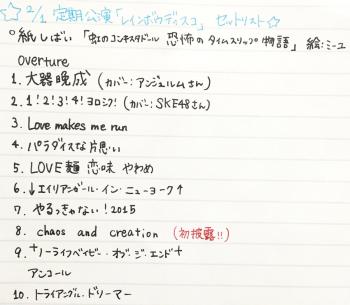 ☆2/1 定期公演「レインボウディスコ」 セットリスト☆
°紙しばい 「虹のコンキスタドール 恐怖のタイムスリップ物語」 絵:ミーユ
Overture
1. 大器晩成 (カバー:アンジュルムさん)
2. 1!2!3!4!ヨロシク! (カバー:SKE48さん)
3. Love makes me run
4. パラダイスな片思い
5. LOVE麺 恋味 やわめ
6. ↓エイリアンガール・イン・ニューヨーク↑
7. やるっきゃない!2015
8. chaos and creation (初披露!!)
9. +ノーライフベイビー・オブ・ジ・エンド+
アンコール
10. トライアングル・ドリーマー